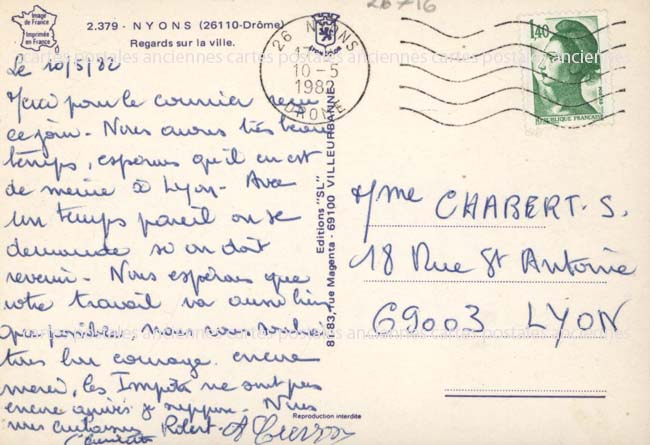 Image
de France
Imprimée
en France
2.379 - NYONS (26110-Drôme)
Regards sur la ville.
26716
26 NYONS
10-5
1982
DROME
1,40
REPUBLIQUE FRANÇAISE
Le 10/5/82
Merci pour le courrier reçu
ce jour. Nous avons très beau
temps, espérons qu'il en est
de même à Lyon. Avec
un temps pareil on se
demande si on doit
revenir. Nous espérons que
votre travail va aussi bien
que possible, nous vous souhai
tons bon courage. encore
merci, les Impôts ne sont pas
encore arrivés je suppose. Nous
vous embrassons Robert
Editions "SL"
81-83, rue Magenta - 69100 VILLEURBANNE
Mme CHABERT. S.
18 Rue St Antoine
69003 LYON
Reproduction interdite
cartes postales anciennes cartes postales anciennes cartes postales anciennes
cartes postales anciennes cartes postales anciennes cartes postales anciennes